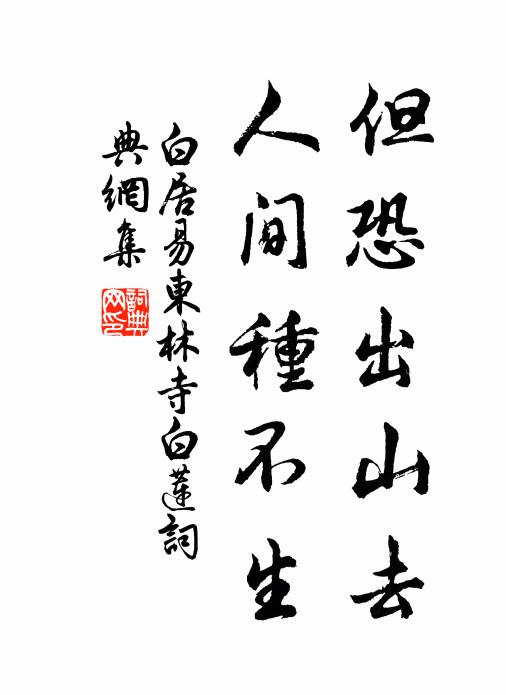 但恐出山去
人间種不生
白居易東林寺白蓮詞
典網集
詞典
网印